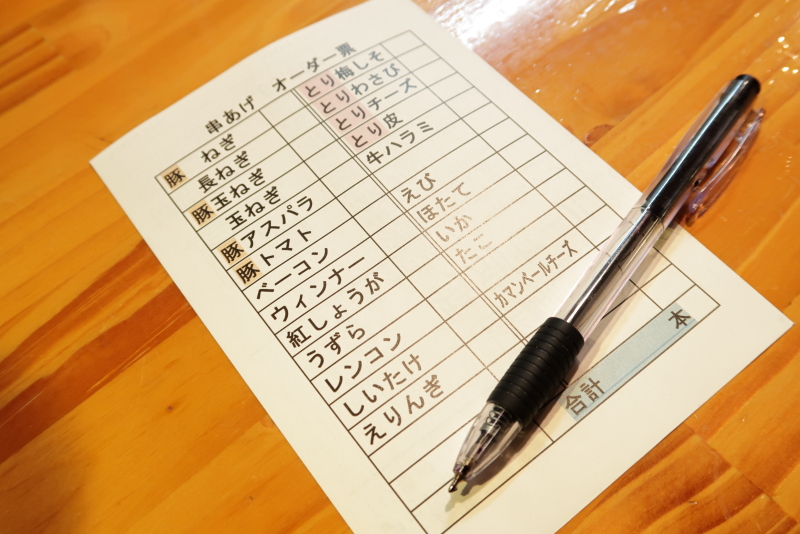 串あげ オーダー票
豚 ねぎ
長ねぎ
豚玉ねぎ
玉ねぎ
豚アスパラ
豚トマト
ベーコン
ウィンナー
紅しょうが
うずら
レンコン
しいたけ
えりんぎ
とり梅しそ
とりわさび
とりチーズ
とり皮
牛ハラミ
えび
ほたて
いか
たこ
カマンベールチーズ
合計 本